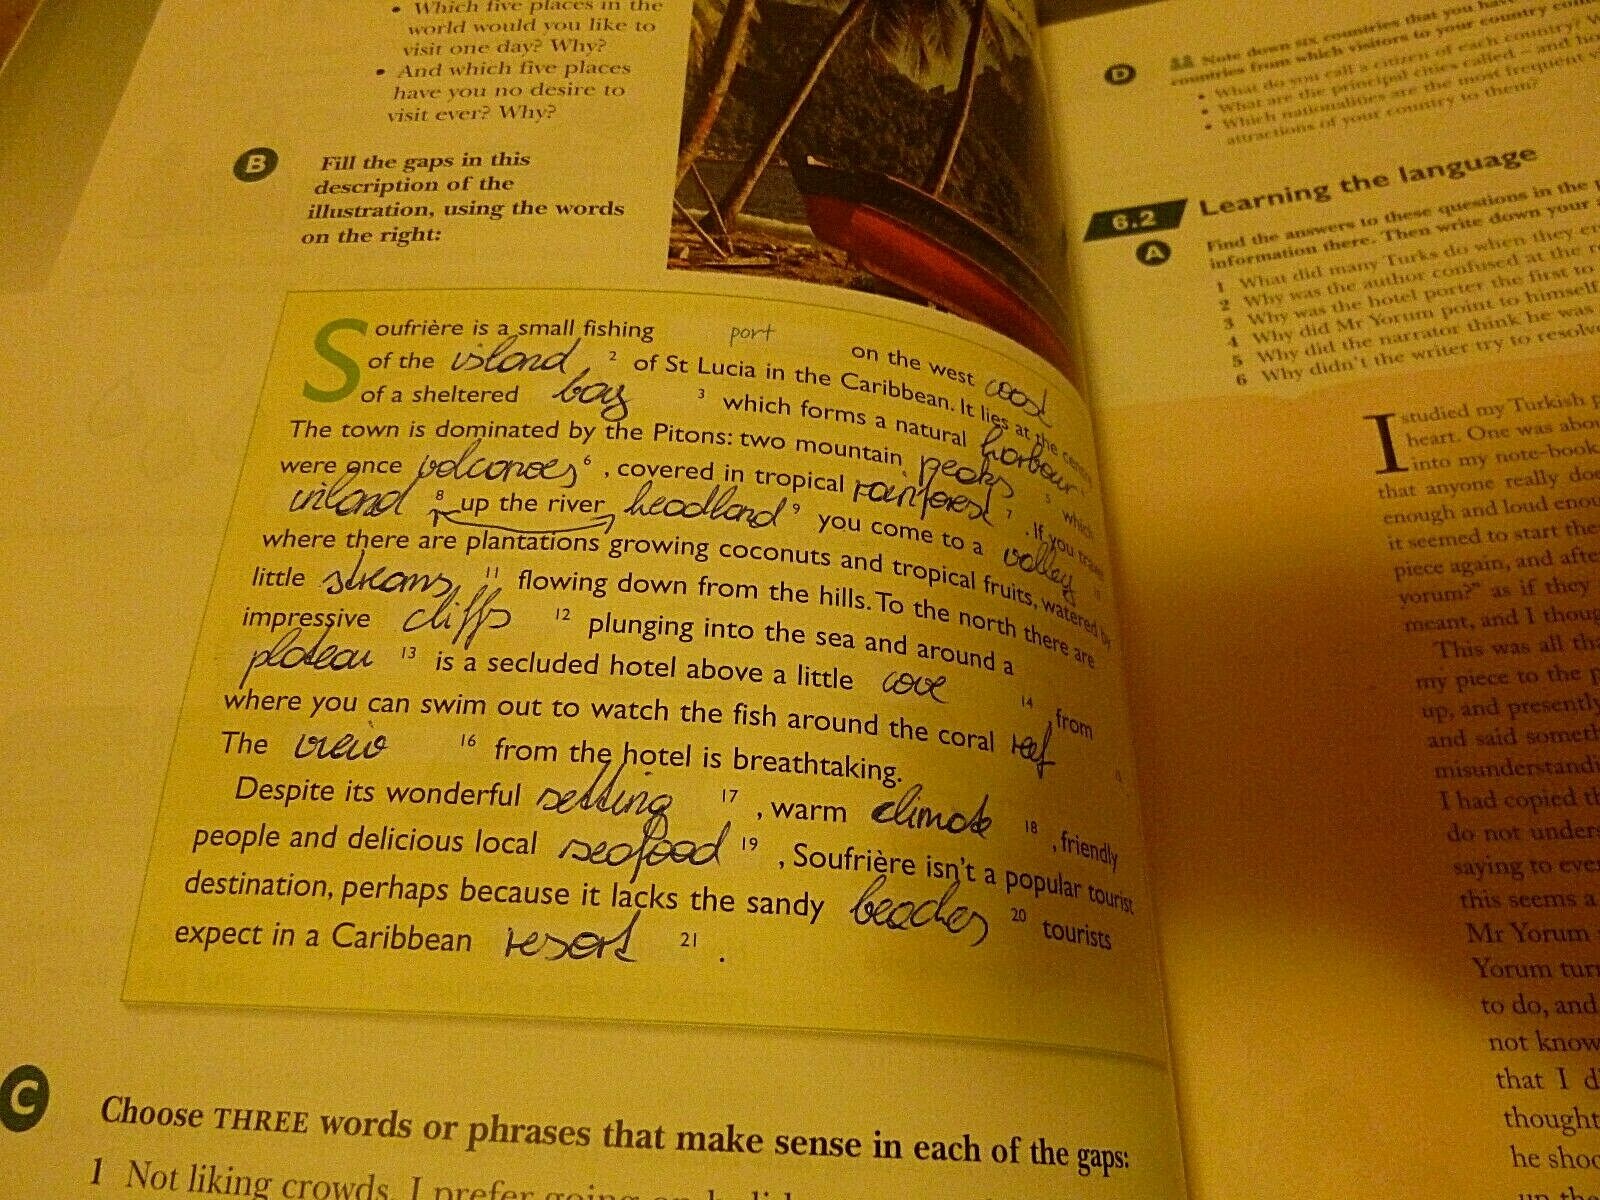 • Which five places in the
world would you like to
visit one day? Why?
• And which five places
have you no desire to
visit ever? Why?
B
Fill the gaps in this
description of the
illustration, using the words
on the right:
Soufrière is a small fishing port on the west coast
of the island 2 of St Lucia in the Caribbean. It lies at the centre
of a sheltered bay 3 which forms a natural harbour
The town is dominated by the Pitons: two mountain peaks 5 which
were once volcanoes 6, covered in tropical rainforest 7. If you travel
inland 8 up the river headland 9 you come to a valley 10
where there are plantations growing coconuts and tropical fruits, watered by
little streams 11 flowing down from the hills. To the north there are
impressive cliffs 12 plunging into the sea and around a
plateau 13 is a secluded hotel above a little cove 14, from
where you can swim out to watch the fish around the coral reef
The view 16 from the hotel is breathtaking.
Despite its wonderful setting 17, warm climate 18, friendly
people and delicious local seafood 19, Soufrière isn't a popular tourist
destination, perhaps because it lacks the sandy beaches 20 tourists
expect in a Caribbean resort 21.
C
Choose THREE words or phrases that make sense in each of the gaps:
1 Not liking crowds, I prefer going on
D
Note down six countries that you have
countries from which visitors to your country
• What do you call a citizen of each country?
• What are the principal cities called – and
• Which nationalities are the most frequent
attractions of your country to them?
6.2 Learning the language
A
Find the answers to these questions in the
information there. Then write down your
1 What did many Turks do when they
2 Why was the author confused at the
3 Why was the hotel porter the first to
4 Why did Mr Yorum point to himself
5 Why did the narrator think he was
6 Why didn't the writer try to resolve
I studied my Turkish
heart. One was
into my note-book
that anyone really
enough and loud
it seemed to start the
piece again, and
yorum?" as if they
meant, and I
This was all
my piece to the
up, and presently
and said
I had copied
do not
saying to
this seems a
Mr Yorum
Yorum
to do, and
not know
that I
thought
he
up the